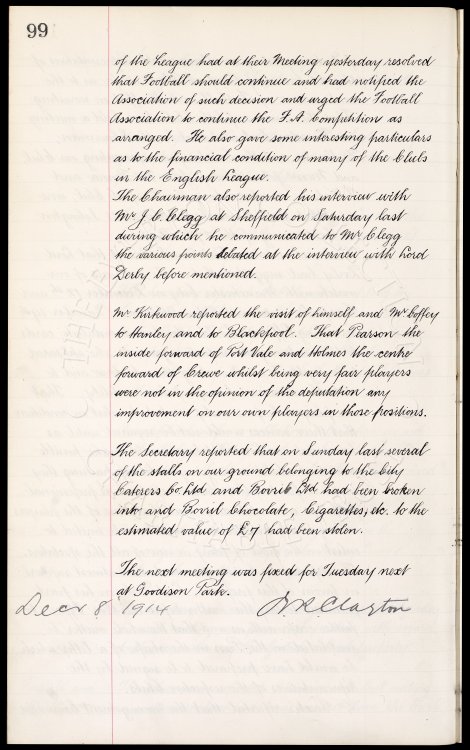 99
of the League had at their Meeting yesterday resolved
that Football should continue and had notified the
Association of such decision and urged the Football
Association to continue the F.A. Competition as
arranged. He also gave some interesting particulars
as to the financial condition of many of the Clubs
in the English League.
The Chairman also reported his interview with
Mr J. C. Clegg at Sheffield on Saturday last
during which he communicated to Mr Clegg
the various points debated at the interview with Lord
Derby before mentioned.
Mr Kirkwood reported the visit of himself and Mr Coffey
to Hanley and to Blackpool. That Pearson the
inside forward of Port Vale and Holmes the centre
forward of Crewe whilst being very fair players
were not in the opinion of the deputation any
improvement on our own players in those positions.
The Secretary reported that on Sunday last several
of the stalls on our ground belonging to the City
Caterers Co. Ltd and Bovril Ltd had been broken
into and Bovril Chocolate, Cigarettes, etc. to the
estimated value of £7 had been stolen.
The next meeting was fixed for Tuesday next
at Goodison Park.
Decr 8 1914 W R Clayton